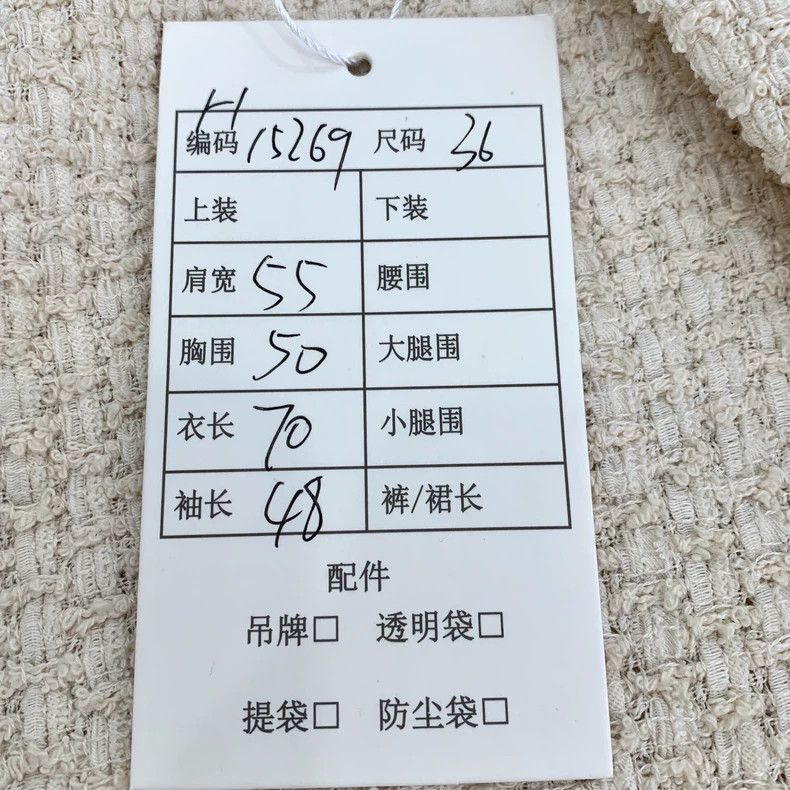 H
编码 15269 尺码 36
上装 下装
肩宽 55 腰围
胸围 50 大腿围
衣长 70 小腿围
袖长 48 裤/裙长
配件
吊牌□ 透明袋□
提袋□ 防尘袋□